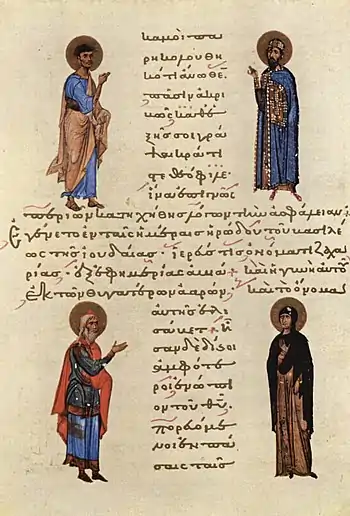 κἀμοὶ πα
ρηκολουθη
κότι ἄνωθε
πᾶσιν ἀκρι
βῶς καθε
ξῆς σοι γρά
ψαι κράτι
στε θεόφιλε
ἵνα ἐπιγνῶς
περὶ ὧν κατηχήθης λόγων τὴν ἀσφάλειαν
Ἐγένετο ἐν ταῖς ἡμέραις ἡρώδου τοῦ βασιλέ
ως τῆς ἰουδαίας· ἱερεύς τις ὀνόματι ζαχα
ρίας· ἐξ ἐφημερίας ἀβιά· καὶ ἡ γυνὴ αὐτοῦ
ἐκ τῶν θυγατέρων ἀαρών, καὶ τὸ ὄνομα
αὐτῆς ἐλι
σάβετ· ἦ
σαν δὲ δίκαιοι
ἀμφότε
ροι ἐνώπι
ον τοῦ θυ·
πορευόμε
νοι ἐν πά
σαις ταῖς